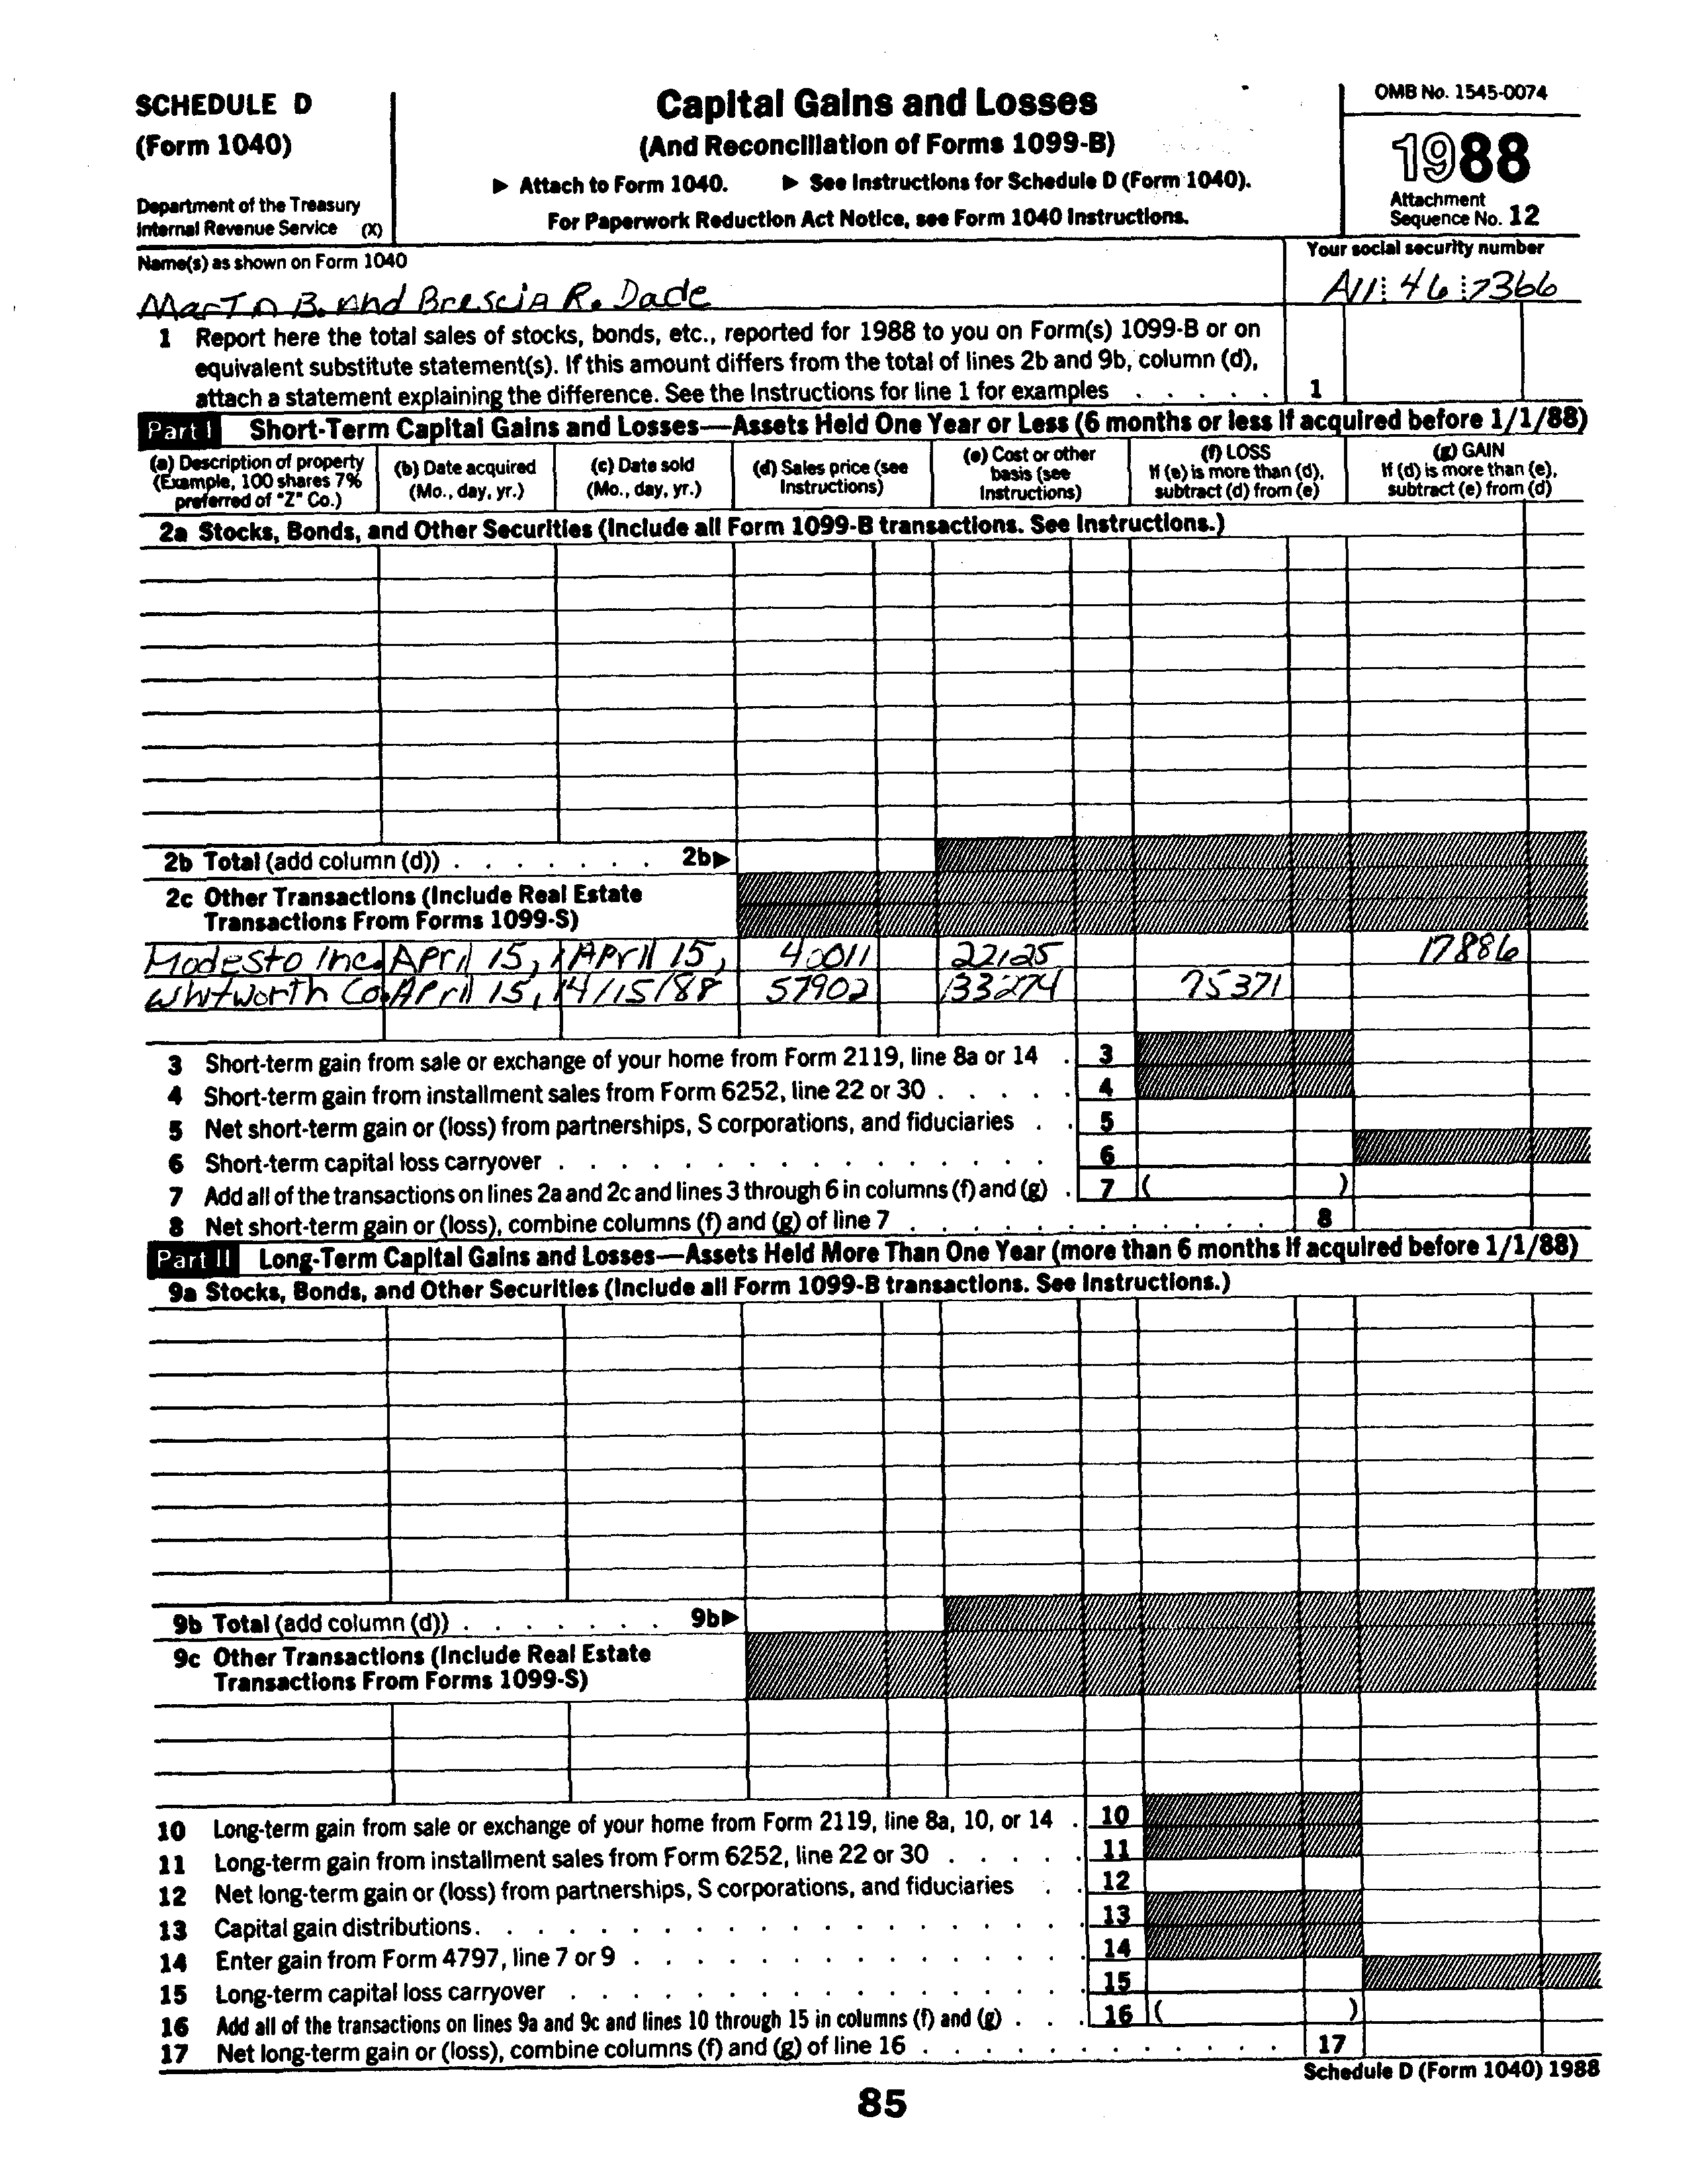 SCHEDULE D
(Form 1040)
Department of the Treasury
Internal Revenue Service (X)
Capital Gains and Losses
(And Reconciliation of Forms 1099-B)
▶ Attach to Form 1040. ▶ See Instructions for Schedule D (Form 1040).
For Paperwork Reduction Act Notice, see Form 1040 Instructions.
OMB No. 1545-0074
1988
Attachment
Sequence No. 12
Name(s) as shown on Form 1040
Your social security number
B. And Brescia R. Dade
46 7366
1 Report here the total sales of stocks, bonds, etc., reported for 1988 to you on Form(s) 1099-B or on
equivalent substitute statement(s). If this amount differs from the total of lines 2b and 9b, column (d),
attach a statement explaining the difference. See the Instructions for line 1 for examples . . . . . 1
Part I Short-Term Capital Gains and Losses—Assets Held One Year or Less (6 months or less if acquired before 1/1/88)
(a) Description of property
(Example, 100 shares 7%
preferred of "Z" Co.)
(b) Date acquired
(Mo., day, yr.)
(c) Date sold
(Mo., day, yr.)
(d) Sales price (see
Instructions)
(e) Cost or other
basis (see
Instructions)
(f) LOSS
If (e) is more than (d),
subtract (d) from (e)
(g) GAIN
If (d) is more than (e),
subtract (e) from (d)
2a Stocks, Bonds, and Other Securities (Include all Form 1099-B transactions. See Instructions.)
2b Total (add column (d)) . . . . . . . 2b▶
2c Other Transactions (Include Real Estate
Transactions From Forms 1099-S)
Modesto Inc. April 15, April 15, 40011 22125 17886
Whitworth Co. April 15, 4/15/88 57902 133274 75371
3 Short-term gain from sale or exchange of your home from Form 2119, line 8a or 14 . 3
4 Short-term gain from installment sales from Form 6252, line 22 or 30 . . . . . 4
5 Net short-term gain or (loss) from partnerships, S corporations, and fiduciaries . . 5
6 Short-term capital loss carryover . . . . . . . . . . . . . . . . 6
7 Add all of the transactions on lines 2a and 2c and lines 3 through 6 in columns (f) and (g) . 7 ( )
8 Net short-term gain or (loss), combine columns (f) and (g) of line 7 . . . . . . . . . . . 8
Part II Long-Term Capital Gains and Losses—Assets Held More Than One Year (more than 6 months if acquired before 1/1/88)
9a Stocks, Bonds, and Other Securities (Include all Form 1099-B transactions. See Instructions.)
9b Total (add column (d)) . . . . . . . 9b▶
9c Other Transactions (Include Real Estate
Transactions From Forms 1099-S)
10 Long-term gain from sale or exchange of your home from Form 2119, line 8a, 10, or 14 . 10
11 Long-term gain from installment sales from Form 6252, line 22 or 30 . . . . . 11
12 Net long-term gain or (loss) from partnerships, S corporations, and fiduciaries . . 12
13 Capital gain distributions. . . . . . . . . . . . . . . . . . 13
14 Enter gain from Form 4797, line 7 or 9 . . . . . . . . . . . . . 14
15 Long-term capital loss carryover . . . . . . . . . . . . . . . 15
16 Add all of the transactions on lines 9a and 9c and lines 10 through 15 in columns (f) and (g) . . . 16 ( )
17 Net long-term gain or (loss), combine columns (f) and (g) of line 16 . . . . . . . . . . . 17
Schedule D (Form 1040) 1988
85